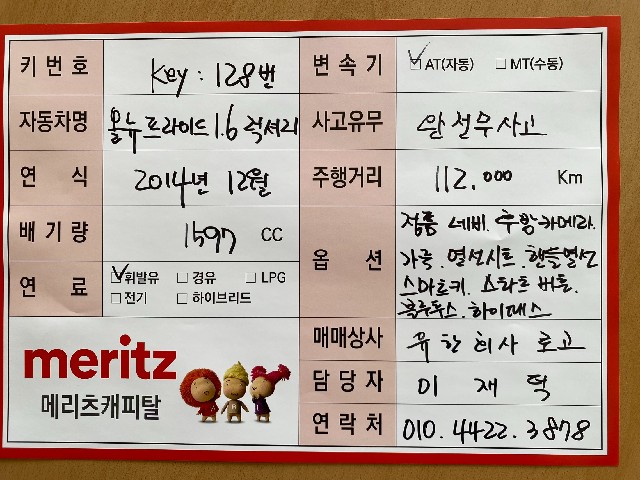 키 번 호 Key : 128번
변 속 기 ☑ AT(자동) ☐ MT(수동)
자동차명 올뉴프라이드 1.6 럭셔리
사고유무 완전무사고
연 식 2014년 12월
주행거리 112.000 Km
배 기 량 1597 CC
옵 션 정품 네비. 후방카메라.
가죽. 열선시트. 핸들열선
스마트키. 스타트 버튼.
블루투스. 하이패스
연 료 ☑ 휘발유 ☐ 경유 ☐ LPG
☐ 전기 ☐ 하이브리드
meritz
메리츠캐피탈
매매상사 유한회사 로고
담 당 자 이 재 덕
연 락 처 010.4422.3878